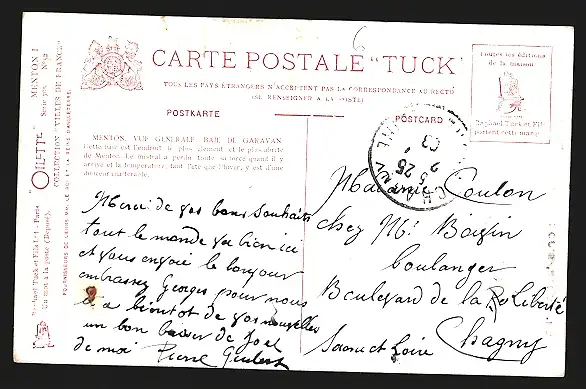 CARTE POSTALE "TUCK"
TOUS LES PAYS ÉTRANGERS N'ACCEPTENT PAS LA CORRESPONDANCE AU RECTO
(SE RENSEIGNER A LA POSTE)
POSTKARTE
POSTCARD
Toutes les éditions
de la maison
Raphael Tuck et Fils
portent cette marque
MENTON I
Série 305
COLLECTION "VILLES DE FRANCE"
"OILETTE"
Raphael Tuck et Fils Ltd. Paris
Un mot à la poste (Déposé).
MENTON, VUE GÉNÉRALE BAIE DE GARAVAN
Cette baie est l'endroit le plus clément et le plus abrité
de Menton. Le mistral a perdu toute sa force quand il y
arrive et la température, tant l'été que l'hiver, y est d'une
douceur
CHAGNY
5 25
Merci de vos bons souhaits
tout le monde va bien ici
et vous envoie le bonjour
embrassez Georges pour nous
et a bientot de vos nouvelles
un bon baiser de
de moi Pierre
Madame Coulon
chez Mr
boulanger
Boulevard de la Liberté
Chagny
Saone et Loire